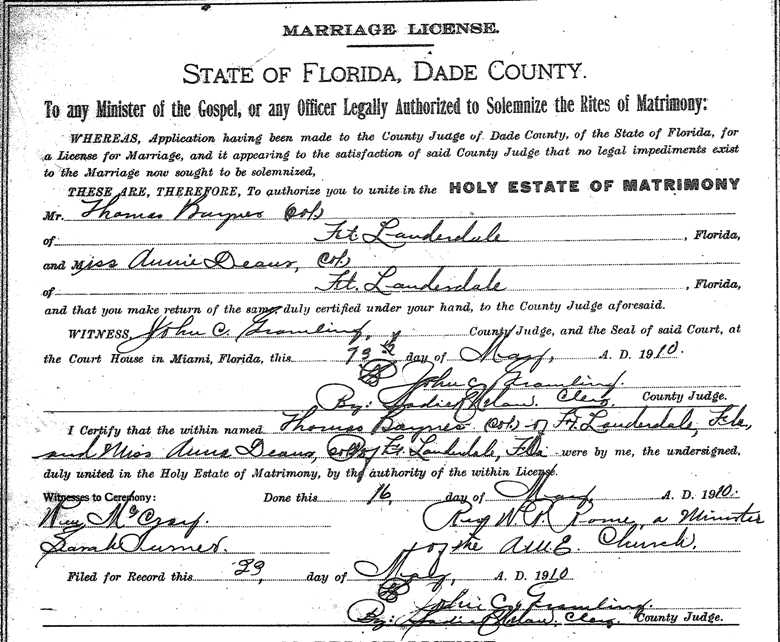 MARRIAGE LICENSE.
STATE OF FLORIDA, DADE COUNTY.
To any Minister of the Gospel, or any Officer Legally Authorized to Solemnize the Rites of Matrimony:
WHEREAS, Application having been made to the County Judge of Dade County, of the State of Florida, for
a License for Marriage, and it appearing to the satisfaction of said County Judge that no legal impediments exist
to the Marriage now sought to be solemnized,
THESE ARE, THEREFORE, To authorize you to unite in the HOLY ESTATE OF MATRIMONY
Mr. Thomas Baynes Col)
of Ft. Lauderdale, Florida,
and Miss Annie Deaux, Col)
of Ft. Lauderdale, Florida,
and that you make return of the same duly certified under your hand, to the County Judge aforesaid.
WITNESS, John C. Gramling, County Judge, and the Seal of said Court, at
the Court House in Miami, Florida, this day of May, A. D. 1910.
John C. Gramling.
By: Sadie Clerk, County Judge.
I Certify that the within named Thomas Baynes (Col) of Ft. Lauderdale, Fla,
and Miss Anna Deaux, of Ft. Lauderdale, Fla were by me, the undersigned,
duly united in the Holy Estate of Matrimony, by the authority of the within License.
Witnesses to Ceremony: Done this 16, day of May, A. D. 1910.
McCray. Rev W. R. Rome, a Minister
Sarah Turner. of the A.M.E. Church.
Filed for Record this 23, day of May, A. D. 1910
John C. Gramling.
By: Sadie Clerk, County Judge.